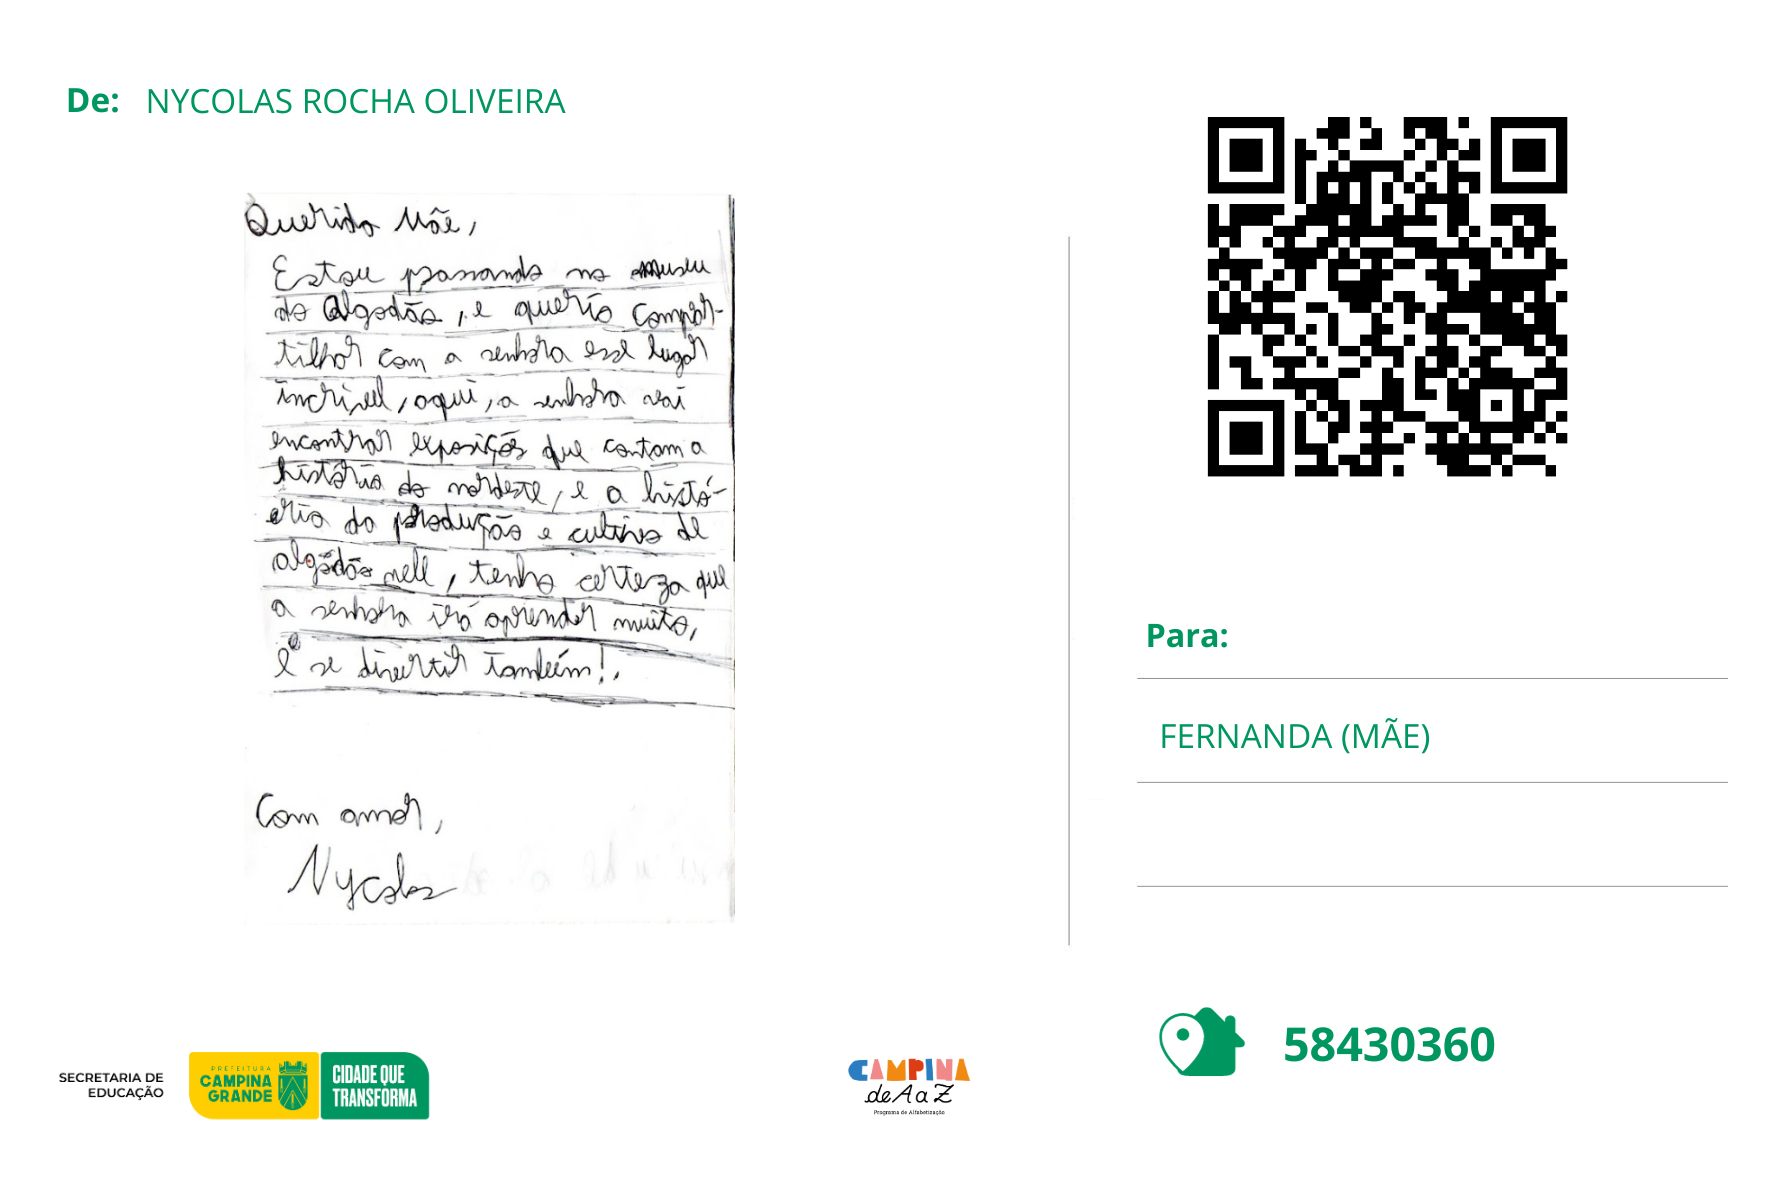 De: NYCOLAS ROCHA OLIVEIRA
Querida Mãe,
Estou passando no museu
do algodão, e queria compar-
tilhar com a senhora esse lugar
incrivel, aqui, a senhora vai
encontrar exposições que contam a
história do nordeste, e a histó-
eria da produção e cultivo de
algodão nele, tenho certeza que
a senhora irá aprender muito,
e se divertir também!.
Com amor,
Nycolas
Para:
FERNANDA (MÃE)
58430360
SECRETARIA DE
EDUCAÇÃO
PREFEITURA
CAMPINA
GRANDE
CIDADE QUE
TRANSFORMA
CAMPINA
de A a Z
Programa de Alfabetização